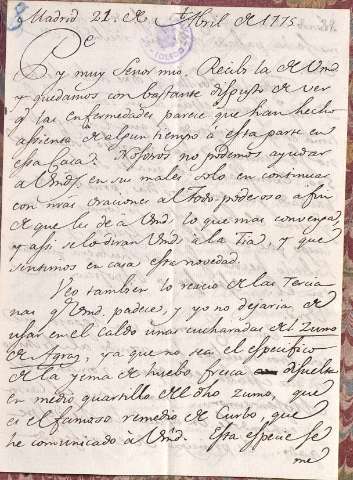 Madrid 21. de Abril de 1775.
Pe
Py muy Señor mio. Recibi la de Vmd
y quedamos con bastante disgusto de ver
q las enfermedades parece que han hecho
assiento de algun tiempo à esta parte en
essa Casa. Nosotros no podemos ayudar
a Vmds. en sus males solo en continuar
con nras oraciones al Todo-poderoso a fin
de que les dè à Vmds lo que mas convenga,
y assi se lo diran Vmds à la Tia, y que
sentimos en casa esta novedad.
Veo tambien lo reacio de las Tercia
nas q Vmd. padece, y yo no dejaria de
usar en el Caldo unas cucharadas del Zumo
de Agraz, ya que no sea el especifico
de la yema de huebo fresca disuelta
en medio quartillo del dho zumo, que
es el famoso remedio de Curbo, que
he comunicado à Vmd. Esta especie se
me